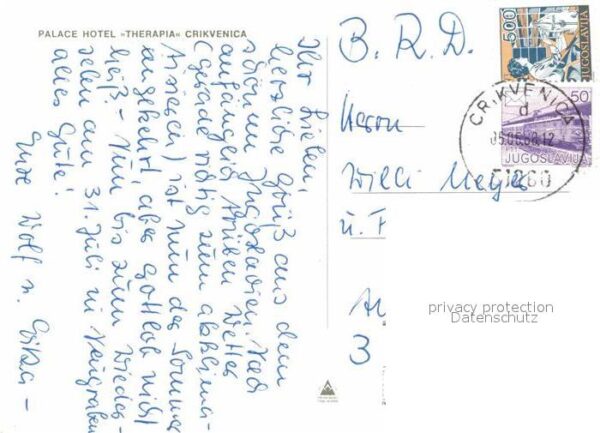 PALACE HOTEL »THERAPIA« CRIKVENICA
Ihr Lieben,
herzliche Grüße aus dem
schönen Jugoslawien. Nach
anfänglich trüben Wetter
(gerade richtig zum akklima-
tisieren) ist nun der Sommer
eingekehrt, aber Gottlob nicht
heiß. – Nun, bis zum Wieder-
sehen am 31. Juli in Neugraben
alles Gute!
Eure Wolf u.
B. R. D.
Herrn
Willi Meyer
u. F
3
500
JUGOSLAVIJA
50
JUGOSLAVIJA
CRIKVENICA
d
51260
privacy protection
Datenschutz